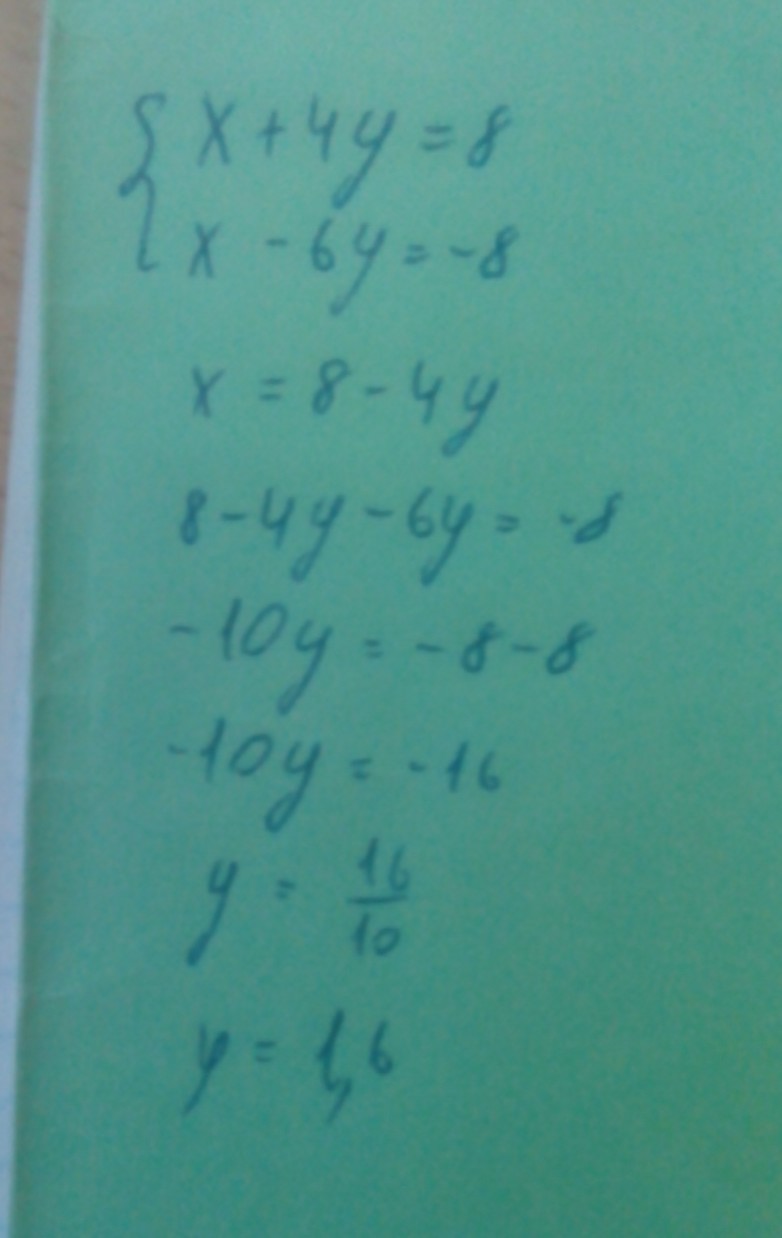 { x + 4y = 8
x - 6y = -8
x = 8 - 4y
8 - 4y - 6y = -8
-10y = -8 - 8
-10y = -16
y = 16/10
y = 1,6